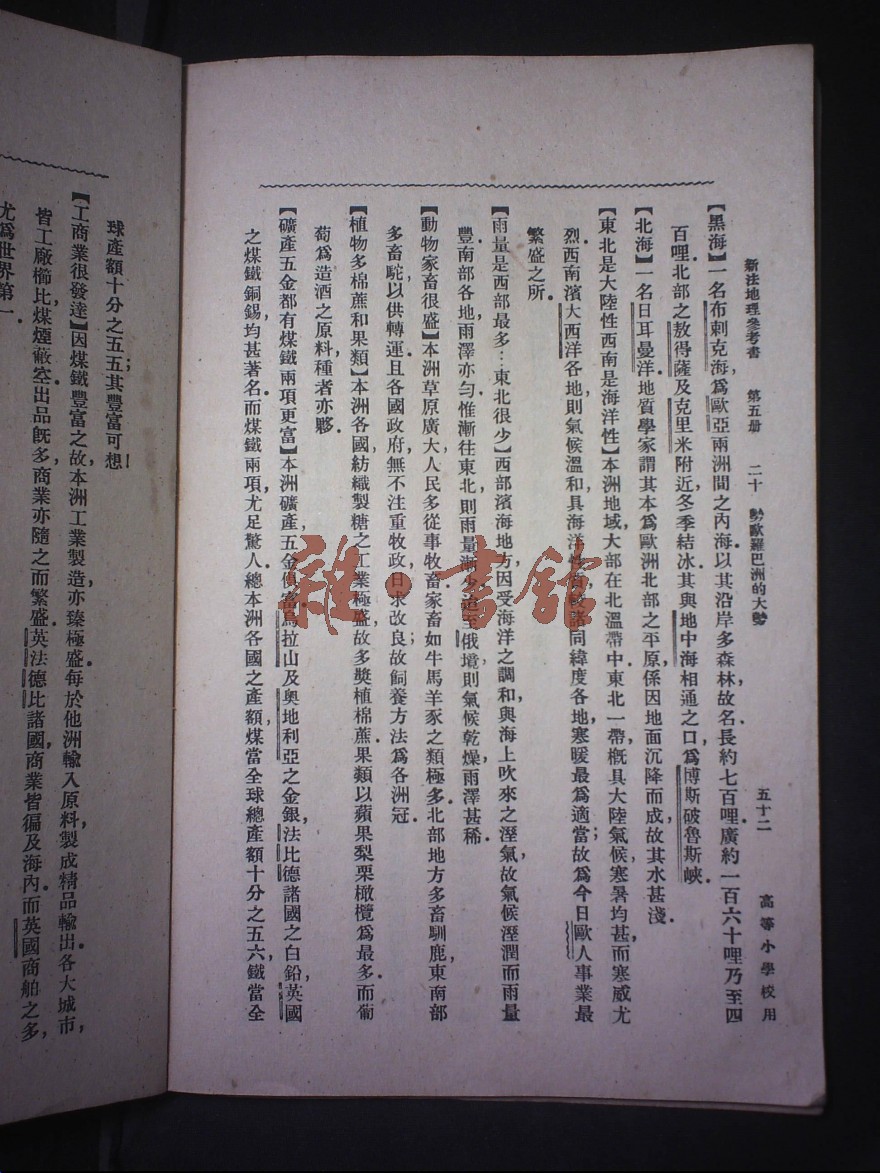 新法地理參考書　第五册　二十　勢歐羅巴洲的大勢　五十二　高等小學校用
【黑海】一名布剌克海，爲歐亞兩洲間之內海．以其沿岸多森林故名．長約七百哩，廣約一百六十哩乃至四
百哩．北部之敖得薩及克里米附近，冬季結冰．其與地中海相通之口，爲博斯破魯斯峽．
【北海】一名日耳曼洋．地質學家謂其本爲歐洲北部之平原，係因地面沉降而成，故其水甚淺．
【東北是大陸性西南是海洋性】本洲地域，大部在北溫帶中．東北一帶，槪具大陸氣候，寒暑均甚，而寒威尤
烈．西南濱大西洋各地，則氣候溫和，具海洋性質，較諸同緯度各地，寒暖最爲適當；故爲今日歐人事業最
繁盛之所．
【雨量是西部最多…東北很少】西部濱海地方，因受海洋之調和，與海上吹來之溼氣，故氣候溼潤而雨量
豐．南部各地，雨澤亦勻．惟漸往東北，則雨量漸少．迨至俄境，則氣候乾燥，雨澤甚稀．
【動物家畜很盛】本洲草原廣大，人民多從事牧畜．家畜如牛馬羊豕之類極多．北部地方多畜馴鹿，東南部
多畜駝，以供轉運．且各國政府，無不注重牧政，日求改良，故飼養方法爲各洲冠．
【植物多棉蔗和果類】本洲各國，紡織製糖之工業極盛，故多獎植棉蔗．果類以蘋果梨栗橄欖爲最多．而葡
萄爲造酒之原料，種者亦夥．
【礦產五金都有煤鐵兩項更富】本洲礦產，五金俱富．烏拉山及奧地利亞之金銀，法比德諸國之白鉛，英國
之煤鐵銅錫，均甚著名．而煤鐵兩項，尤足驚人．總本洲各國之產額，煤當全球總產額十分之五六，鐵當全
球產額十分之五五；其豐富可想！
【工商業很發達】因煤鐵豐富之故，本洲工業製造，亦臻極盛．每於他洲輸入原料，製成精品輸出．各大城市，
皆工廠櫛比，煤煙蔽空．出品旣多，商業亦隨之而繁盛．英法德比諸國，商業皆徧及海內．而英國商舶之多，
尤爲世界第一．
雜·書館